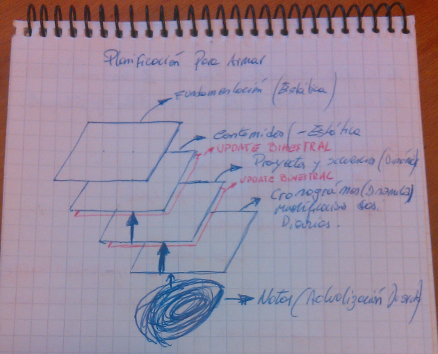 Planificación Para Armar
Fundamentación (Estática)
Contenidos (-Estática
UPDATE BIMESTRAL
Proyectos y
UPDATE BIMESTRAL
Cronogramas (Dinámica)
modificaciones
Diarios.
Notas (Actualización